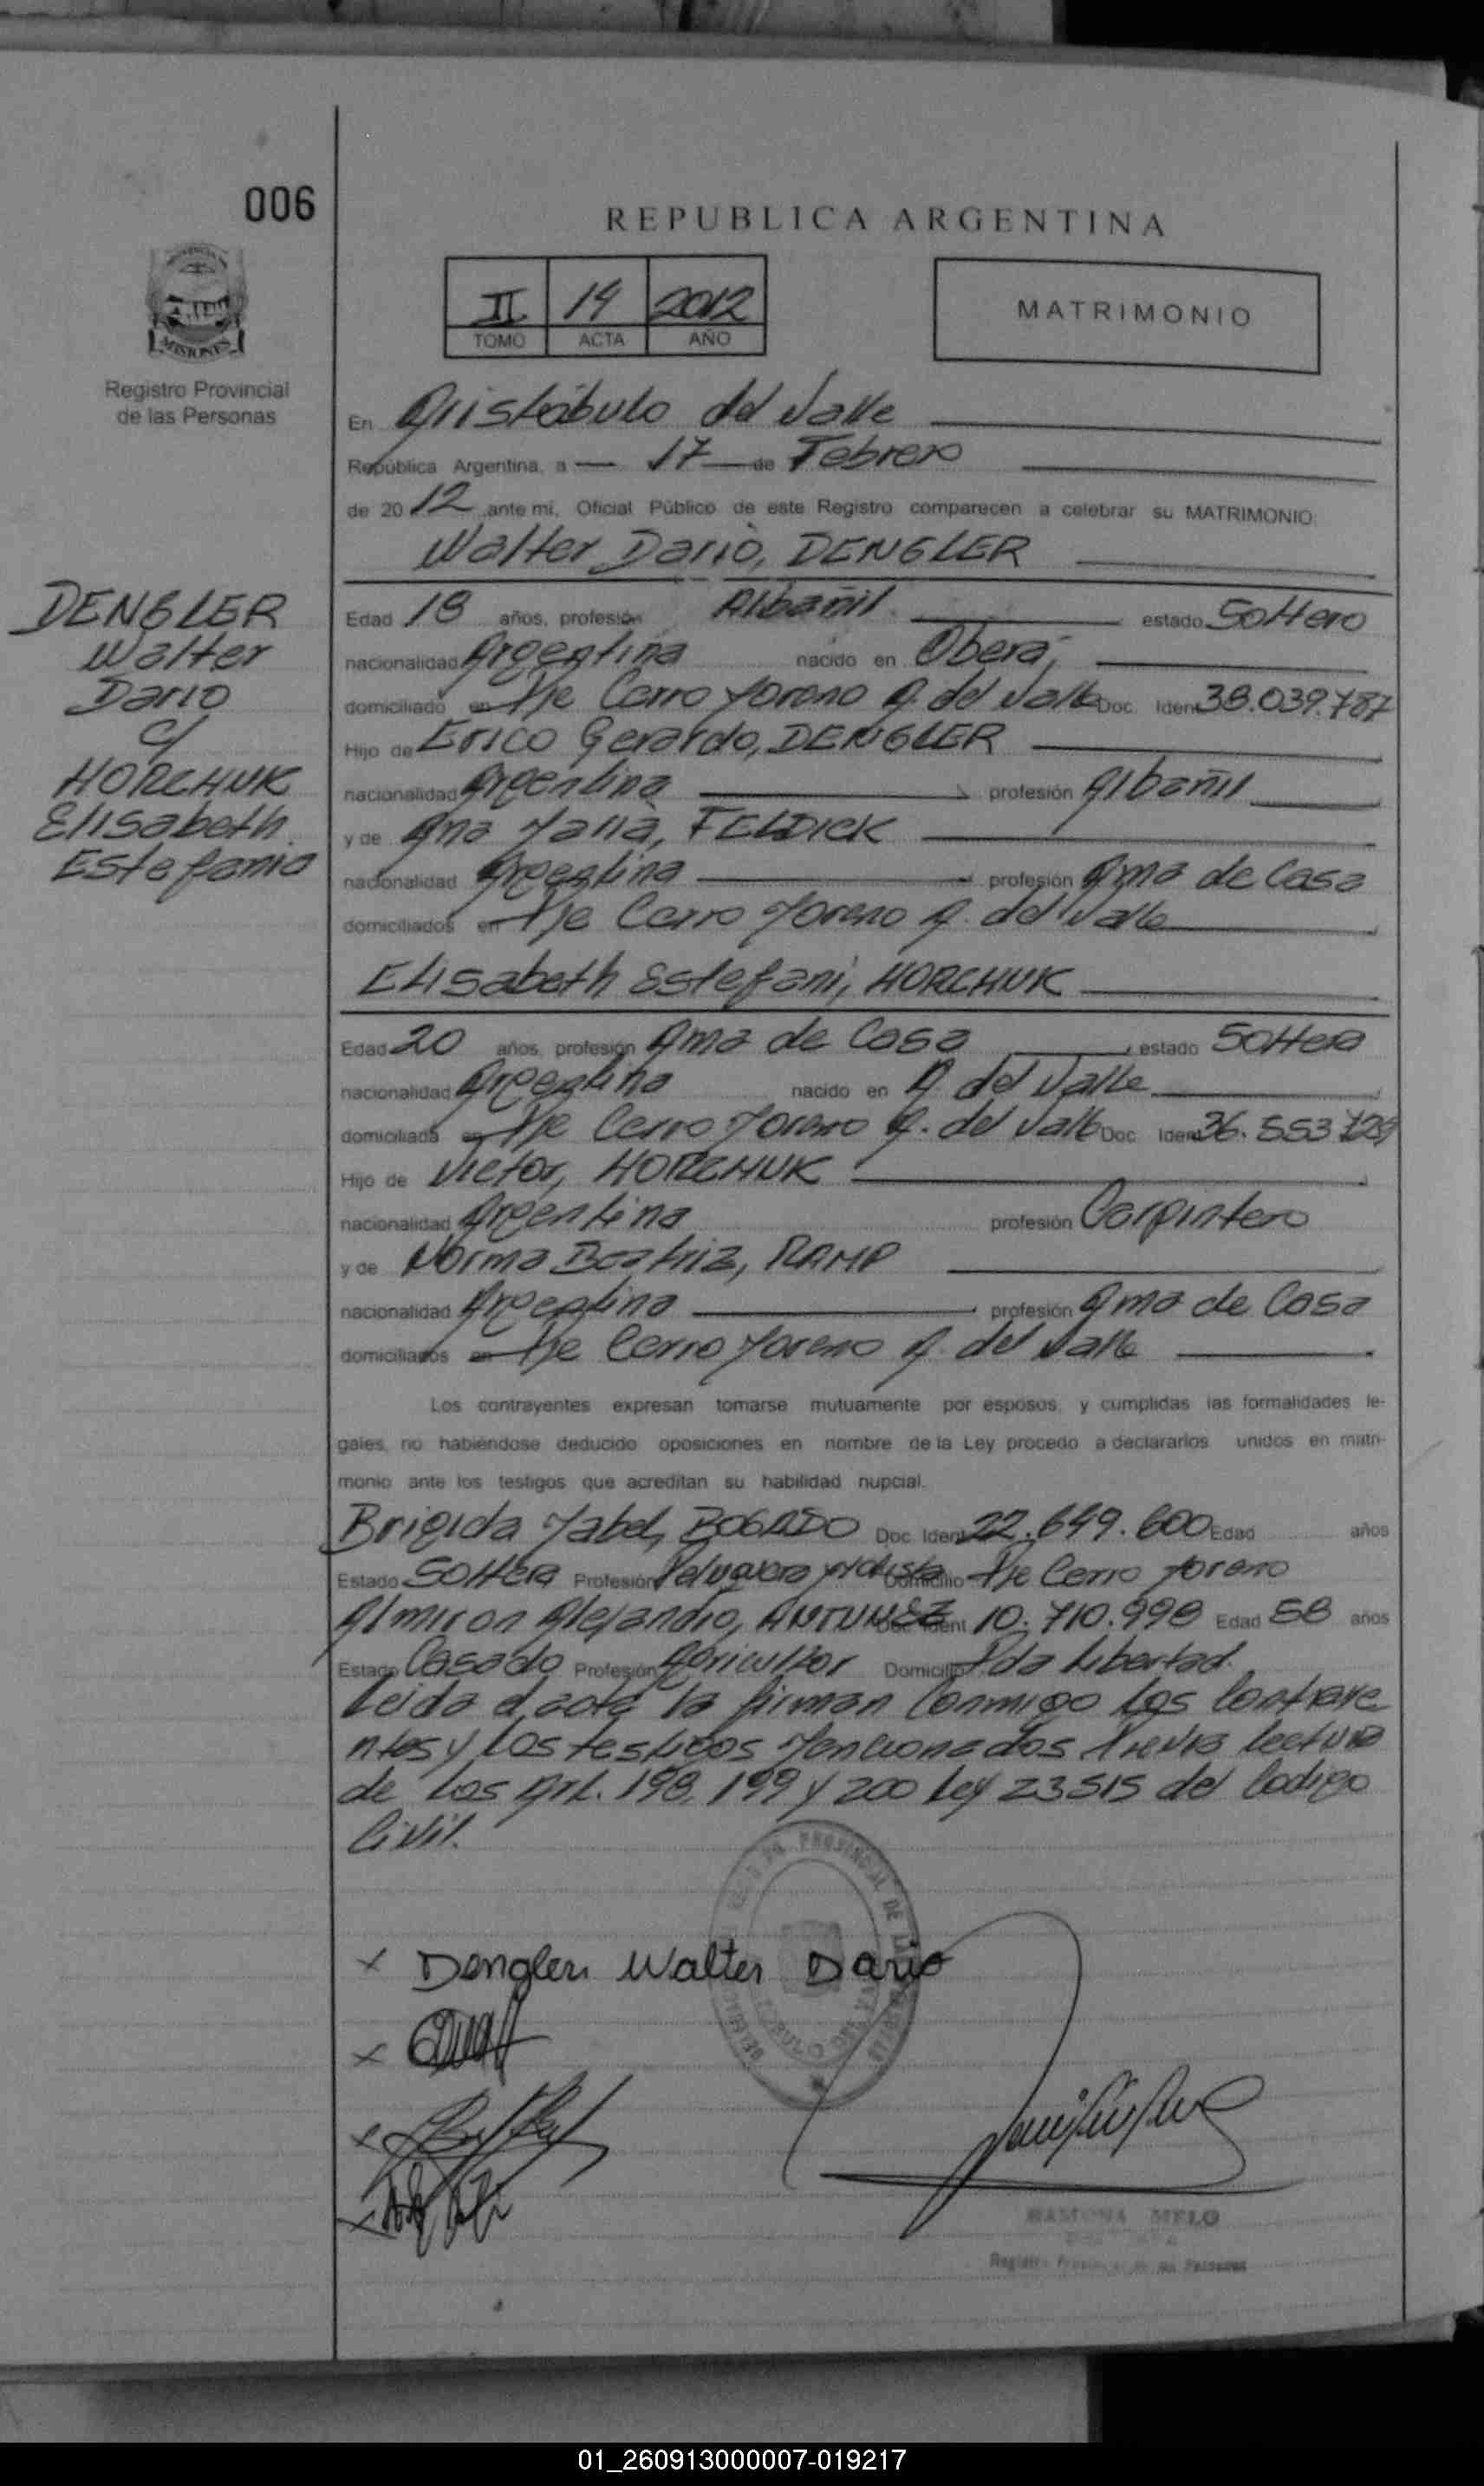 006
REPUBLICA ARGENTINA
MISIONES
Registro Provincial
de las Personas
II 14 2012
TOMO ACTA AÑO
MATRIMONIO
En Aristóbulo del Valle
República Argentina, a 17 de Febrero
de 20 12 ante mi, Oficial Público de este Registro comparecen a celebrar su MATRIMONIO:
Walter Darío, DENGLER
DENGLER
Walter
Dario
c/
HORCHUK
Elisabeth
Estefania
Edad 18 años, profesión Albañil estado Soltero
nacionalidad Argentina nacido en Oberá,
domiciliado en Pje Cerro Moreno A. del Valle Doc. Ident 38.039.787
Hijo de Erico Gerardo, DENGLER
nacionalidad Argentina profesión Albañil
y de Ana Maria, FELDICK
nacionalidad Argentina profesión Ama de Casa
domiciliados en Pje Cerro Moreno A. del Valle
Elisabeth Estefani, HORCHUK
Edad 20 años, profesión Ama de Casa estado Soltera
nacionalidad Argentina nacido en A. del Valle
domiciliada en Pje Cerro Moreno A. del Valle Doc Ident 36.553.729
Hijo de Victor, HORCHUK
nacionalidad Argentina profesión Carpintero
y de Norma Beatriz, RAMP
nacionalidad Argentina profesión Ama de Casa
domiciliados en Pje Cerro Moreno A. del Valle
Los contrayentes expresan tomarse mutuamente por esposos, y cumplidas las formalidades le-
gales, no habiéndose deducido oposiciones en nombre de la Ley procedo a declararlos unidos en matri-
monio ante los testigos que acreditan su habilidad nupcial.
Brigida Mabel, BOGADO Doc Ident 22.649.600 Edad años
Estado Soltera Profesión Domicilio Pje Cerro Moreno
Almiron Alejandro, ANTUNEZ Doc Ident 10.710.998 Edad 58 años
Estado Casado Profesión Agricultor Domicilio Pda Libertad.
Leida el acta la firman Conmigo los Contraye
ntes y los testigos Mencionados Previa lectura
de los Art. 198, 199 y 200 Ley 23515 del Codigo
Civil.
x Dengler Walter Dario
x
x
x
RAMONA MELO
01_260913000007-019217